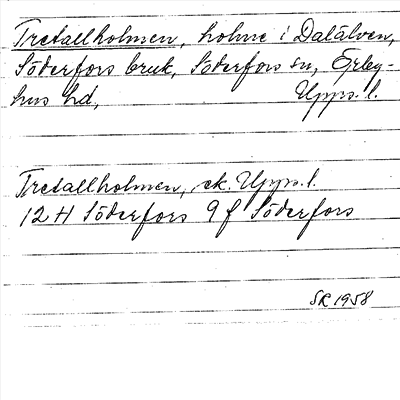 Tretallholmen, holme i Dalälven,
Söderfors bruk, Söderfors sn, Örby-
hus hd, Upps. l.
Tretallholmen, ek. Upps. l.
12 H Söderfors 9 f Söderfors
SR 1958